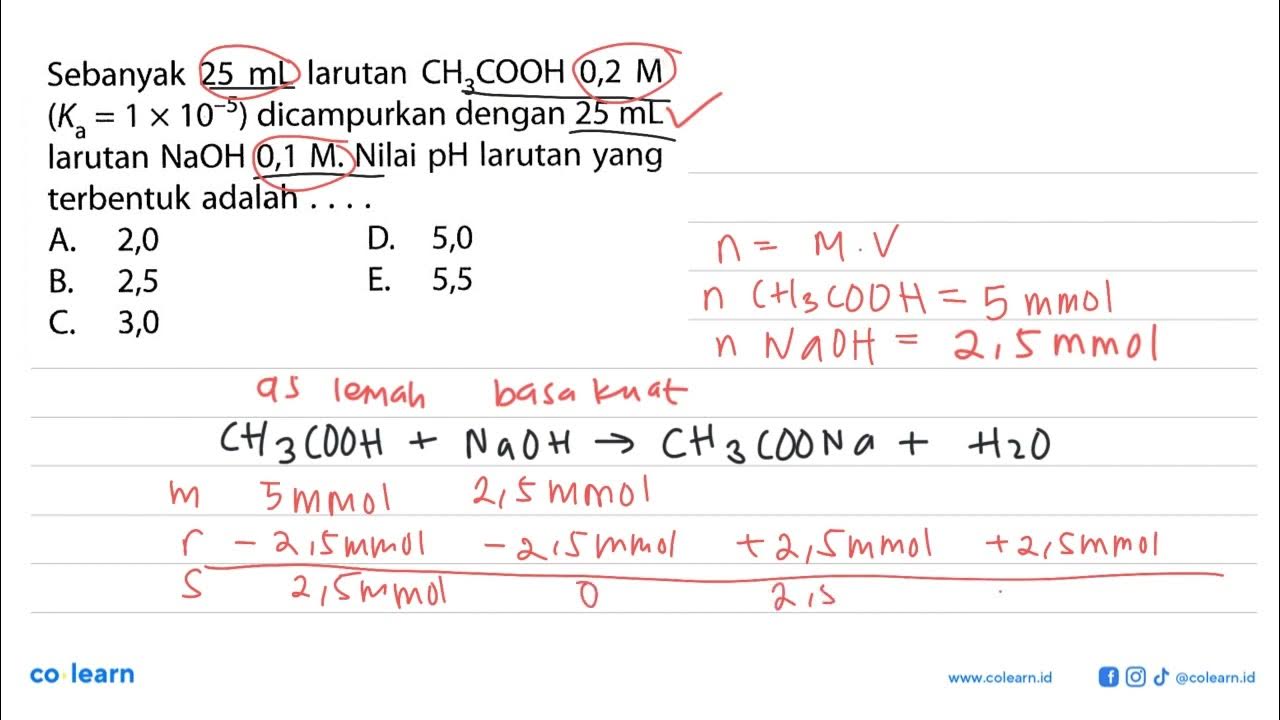 Sebanyak 25 mL larutan CH₃COOH 0,2 M
(Kₐ = 1 × 10⁻⁵) dicampurkan dengan 25 mL
larutan NaOH 0,1 M. Nilai pH larutan yang
terbentuk adalah . . . .
A. 2,0
B. 2,5
C. 3,0
D. 5,0
E. 5,5
n = M . V
n CH3COOH = 5 mmol
n NaOH = 2,5 mmol
as lemah basa kuat
CH3COOH + NaOH → CH3COONa + H2O
m 5 mmol 2,5 mmol
r - 2,5 mmol - 2,5 mmol + 2,5 mmol + 2,5 mmol
s 2,5 mmol 0 2,5
co·learn
www.colearn.id @colearn.id